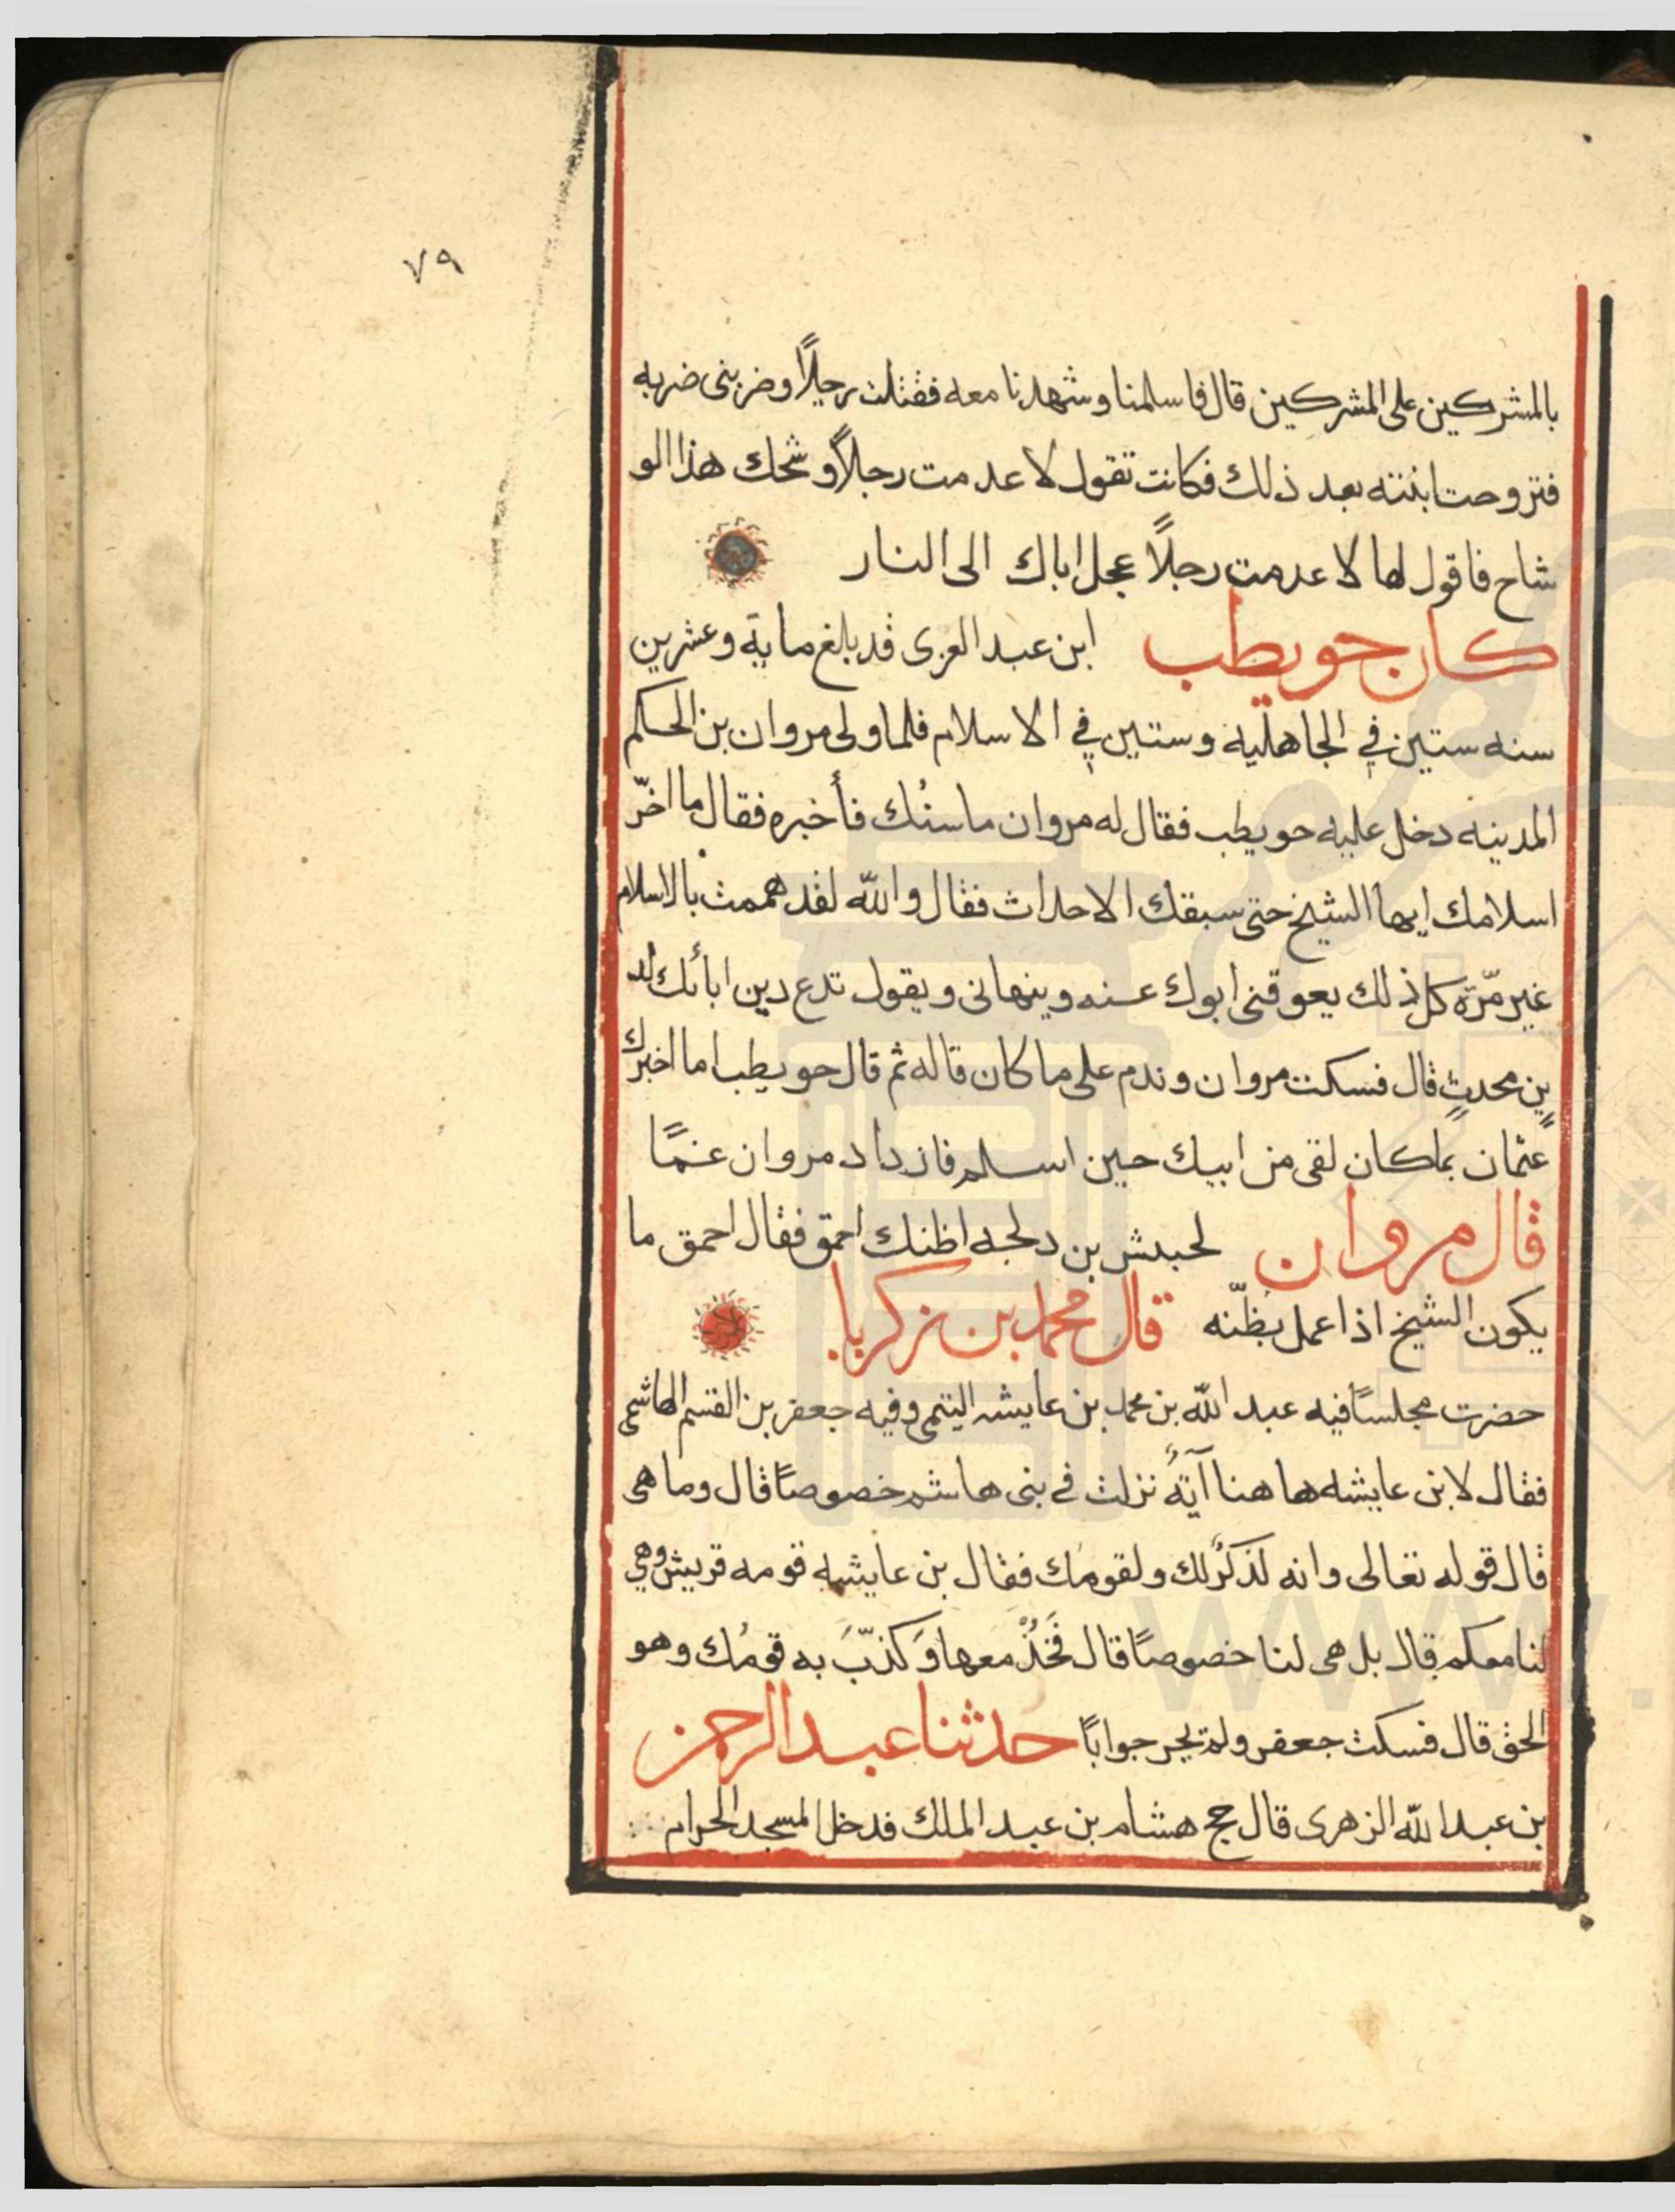 ٧٩
بالمشركين على المشركين قال فاسلمنا وشهدنا معه فقتلت رجلًا وضربنى ضربه
فتزوجت ابنته بعد ذلك فكانت تقول لا عدمت رجلًا وشحك هذا الو
شاح فاقول لها لا عدمت رجلًا عجل اباك الى النار
كان حويطب ابن عبد العزى قد بلغ ماية وعشرين
سنه ستين في الجاهلية وستين في الاسلام فلما ولى مروان بن الحكم
المدينه دخل عليه حويطب فقال له مروان ما سنُك فأخبره فقال ما اخّر
اسلامك ايها الشيخ حتى سبقك الاحداث فقال والله لقد هممت بالاسلام
غير مّرة كل ذلك يعوقنى ابوك عنه وينهانى ويقول تدع دين ابائك لد
ينٍ محدثٍ قال فسكت مروان وندم على ما كان قاله ثم قال حويطب اما اخبرك
عثمان بما كان لقى من ابيك حين اسلم فازداد مروان غمًا
قال مروان لحبيش بن دلجه اظنك احمق فقال احمق ما
يكون الشيخ اذا عمل بظّنه قال محمد بن زكريا
حضرت مجلسًا فيه عبد الله بن محمد بن عايشه التيمى وفيه جعفر بن القسم الهاشمى
فقال لابن عايشه ها هنا آيةُ نزلت في بنى هاشم خصوصًا قال وما هى
قال قوله تعالى وانه لذكرٌ لك ولقومك فقال بن عايشه قومه قريش وهي
لنا معكم قال بل هى لنا خصوصًا قال فَخُذْ معها وَكذّبَ به قومُك وهو
الحق قال فسكت جعفر ولم يحر جوابًا حدثنا عبد الرحمن
بن عبد الله الزهرى قال حج هشام بن عبد الملك فدخل المسجد الحرام